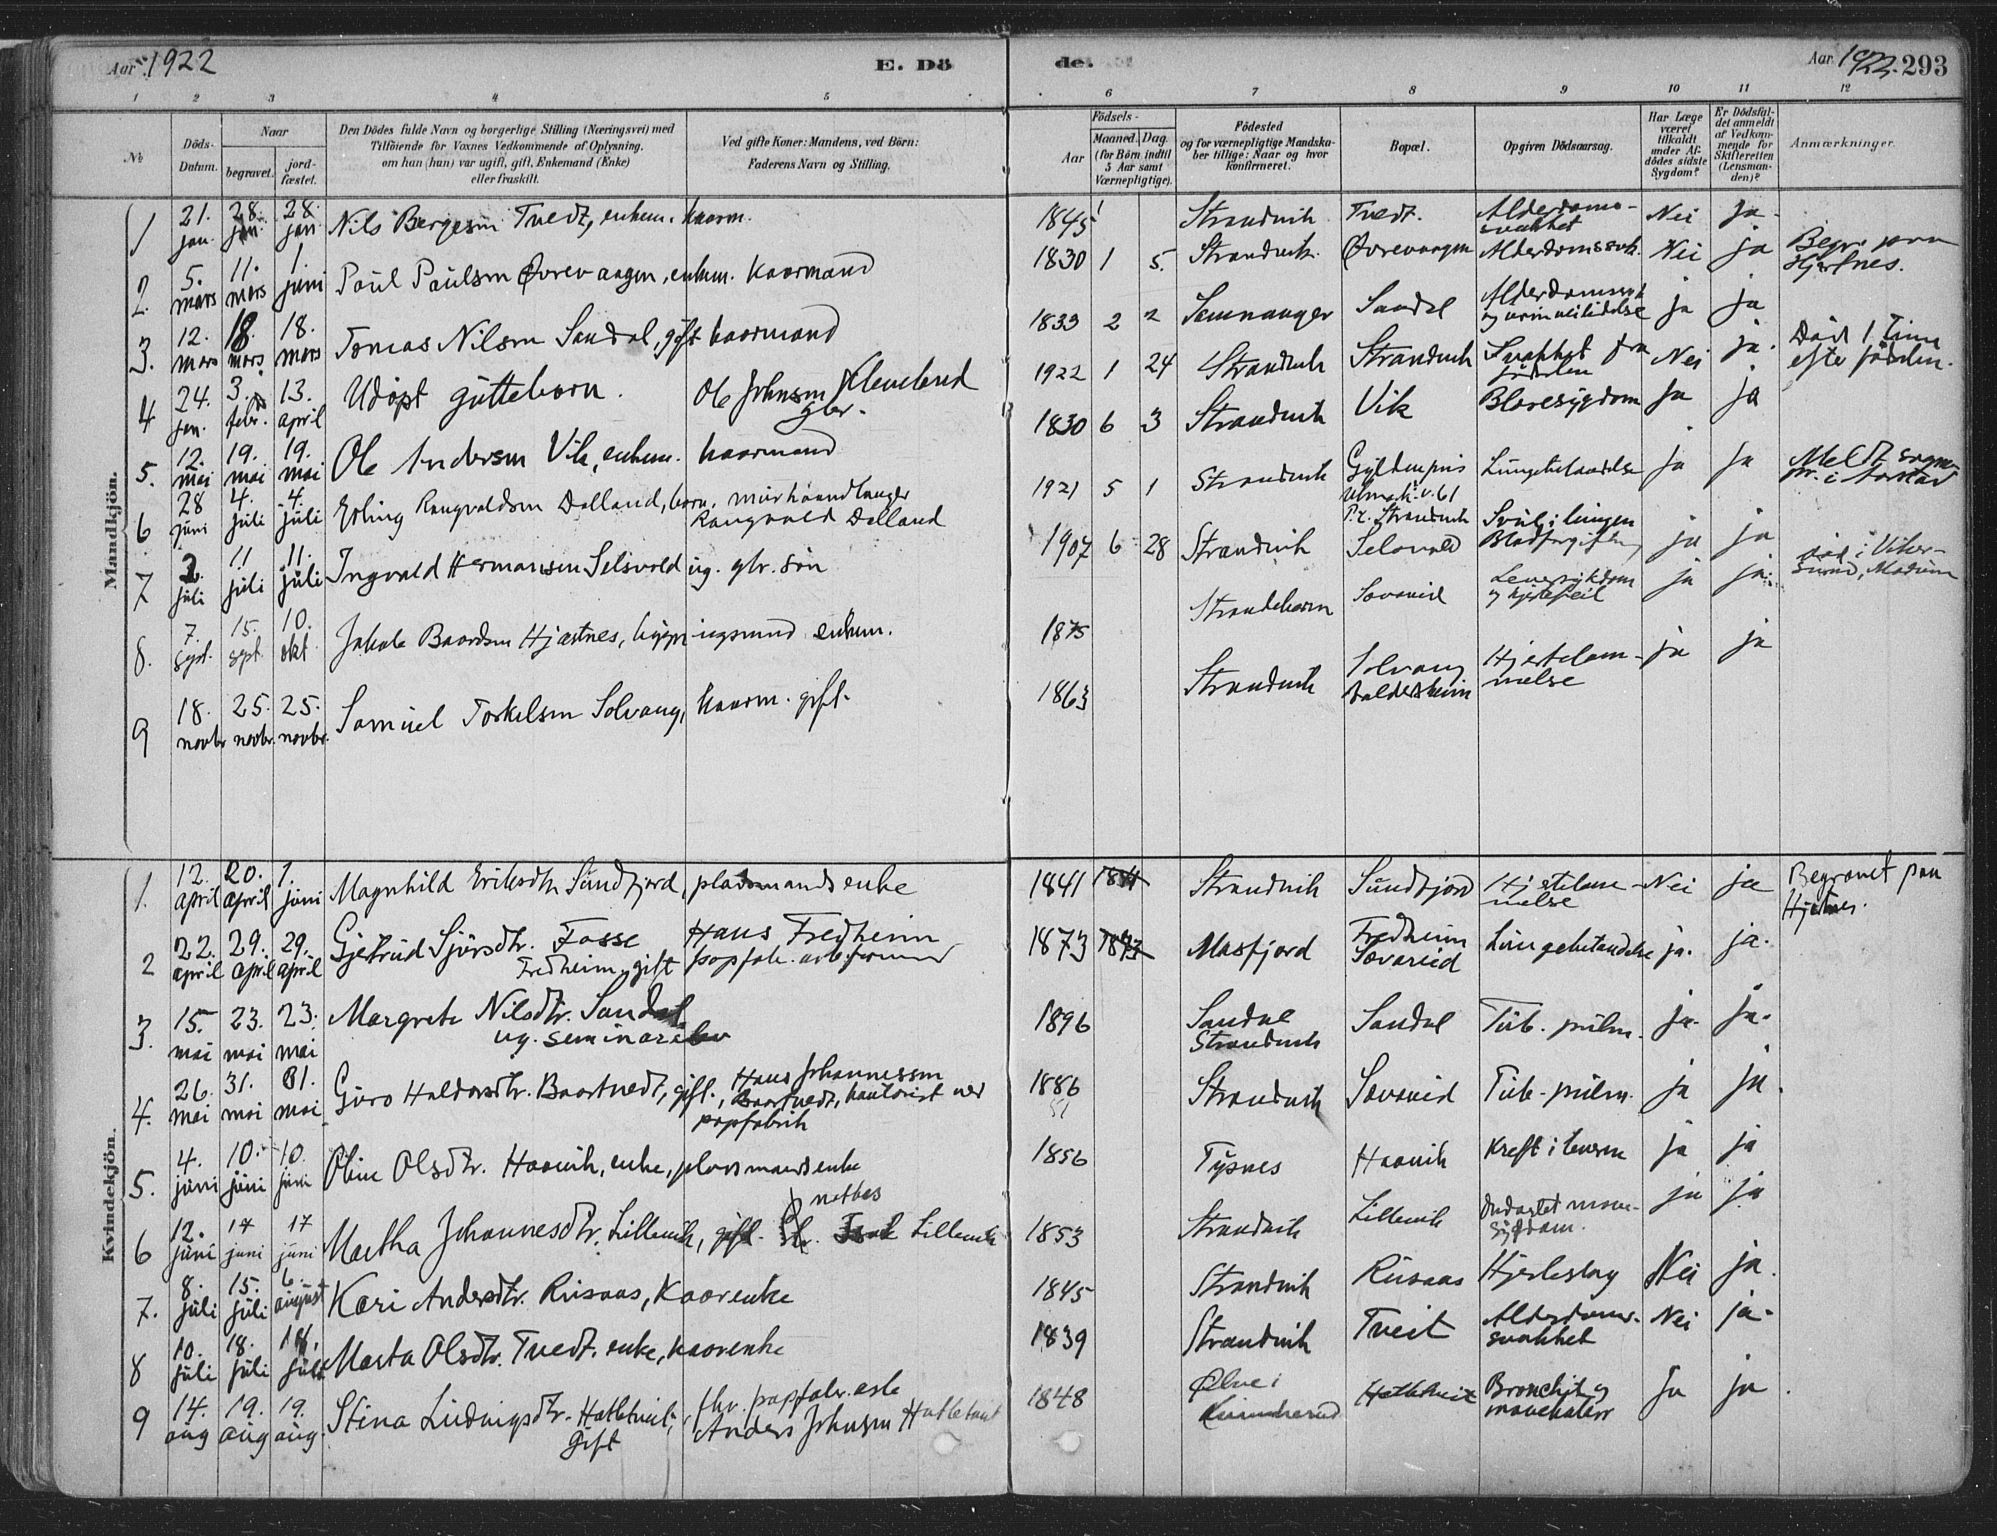 Aar 1922 E. Dö de. Aar 1922. 293
1 2 3 4 5 6 7 8 9 10 11 12
№ Döds-Datum. Naar begravet. jordfæstet. Den Dödes fulde Navn og borgerlige Stilling (Næringsvei) med Tilföiende for Voxnes Vedkommende af Oplysning, om han (hun) var ugift, gift, Enkemand (Enke) eller fraskilt. Ved gifte Koner: Mandens, ved Börn: Faderens Navn og Stilling. Födsels- Aar Maaned. Dag. (for Börn indtil 5 Aar samt Værnepligtige). Födested og for værnepligtige Mandskaber tillige: Naar og hvor konfirmeret. Bopæl. Opgiven Dödsaarsag. Har Læge været tilkaldt under Afdödes sidste Sygdom? Er Dödsfaldet anmeldt af Vedkommende for Skifteretten (Lensmanden)? Anmærkninger.
Mandkjön.
1 21. jan. 28. jan. 28. jan. Nils Bergesen Tvedt, enkem. kaarm. 1845 Strandvik Tvedt. Alderdoms-svakhet Nei Ja
2. 5. mars 11. mars 1. juni Paul Paulsen Øvrevaagen, enkem. kaarmand 1830 1 5. Strandvik Øvrevaagen Alderdomssvk. Nei ja Begr. paa Hjartnes.
3. 12. mars 18. mars 18. mars Tomas Nilsen Sandal, gift kaarmand 1833 2 2 Samnanger Sandal Alderdomssvk og urinveislidelse ja ja
4 24. jan. 3. febr. 13. april Udøpt guttebarn. Ole Johnsen Kleveland gbr. 1922 1 24 Strandvik Strandvik Svakhet fra fødselen Nei ja. Død 1 time efter fødselen.
5. 12. mai 19. mai 19. mai Ole Andersen Vik, enkem. kaarmand 1830 6 3 Strandvik Vik Blæresygdom Ja ja
6 28 juni 4. juli 4. juli Erling Rangvaldsen Dalland, barn, murhaandlanger Rangvald Dalland 1921 5 1 Strandvik Gyldenpris p.t. Strandvik Lungebetændelse ja ja Meldt sogne-pr. i Aarstad
7 2. juli 11 juli 11. juli Ingvald Hermansen Selsvold ug. gbr. søn 1907 6 28 Strandvik Selsvold Svul i lungen Blodforgiftn. ja ja død i Viker-sund, Modum
8. 7. sept. 15. sept. 10. okt. Jakob Baardsen Hjartnes, bygningsmand enkem. 1875 Strandebarm Sævareid Leversykdom og hjertefeil ja ja.
9 18. novbr. 25. novbr. 25. novbr. Samuel Torkelsen Solvang, kaarm. gift. 1863 Strandvik Solvang Baldersheim Hjertelam-melse ja ja
Kvindekjön.
1. 12. april 20. april 1. juni Magnhild Eriksdtr. Sundfjord, pladsmandsenke 1841 1841 Strandvik Sundfjord Hjertelam-melse Nei ja Begravet paa Hjartnes.
2 22. april 29. april 29. april Gjetrud Sjursdtr. Fosse Fredheim, gift Hans Fredheim papfab. arb. formand 1873 1873 Masfjord Fredheim Sævareid Lungebetændelse ja. ja.
3. 15. mai 23. mai 23. mai Margrete Nilsdtr. Sandal ug. seminarielev 1896 Sandal Strandvik Sandal Tub. pulm. ja. ja.
4. 26. mai 31. mai 31. mai Guro Haldorsdtr. Baartvedt, gift, Hans Johannessen Baartvedt, kontorist ved papfabrik 1886 Strandvik Sævareid Tub. pulm. ja ja.
5. 4. juni 10. juni 10. juni Oline Olsdtr. Haavik, enke, plassmandsenke 1856 Tysnes Haavik Kreft i leveren ja ja
6 12. juni 17 juni 17 juni Martha Johannesdtr. Lillevik, gift. Lillevik 1853 Strandvik Lillevik Ondartet mave-sygdom. ja ja
7. 8. juli 15. juli 6. august Kari Andersdtr. Risaas, Kaarenke 1845 Strandvik Risaas Hjerteslag Nei ja.
8 10. juli 18. juli 18. juli Marta Olsdtr. Tvedt. enke, kaarenke 1839 Strandvik Tveit Alderdoms-svakhet Nei ja.
9 14. aug 19. aug 19. aug. Stina Ludvigsdtr. Hatletveit, gift fhv. papfabr. arb. Anders Johnsen Hatletveit 1848 Ølve i Kvinnherad Hatletveit Bronchit og mavekatarr Ja ja.